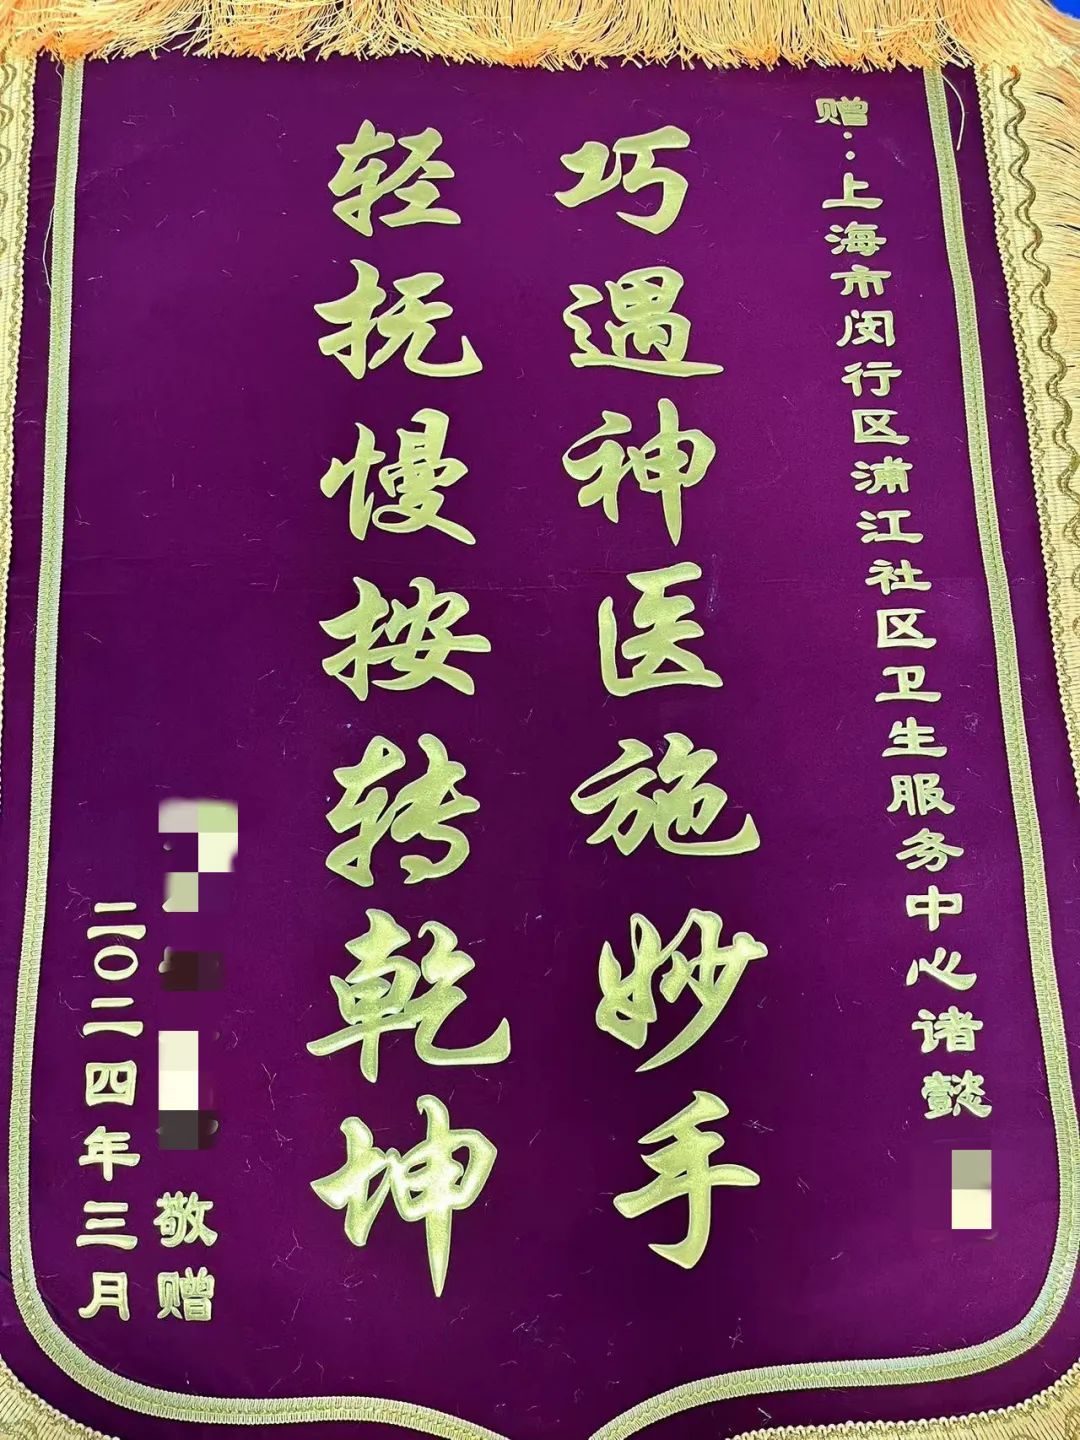 赠：上海市闵行区浦江社区卫生服务中心诸懿
巧遇神医施妙手
轻抚慢按转乾坤
敬赠
二〇二四年三月